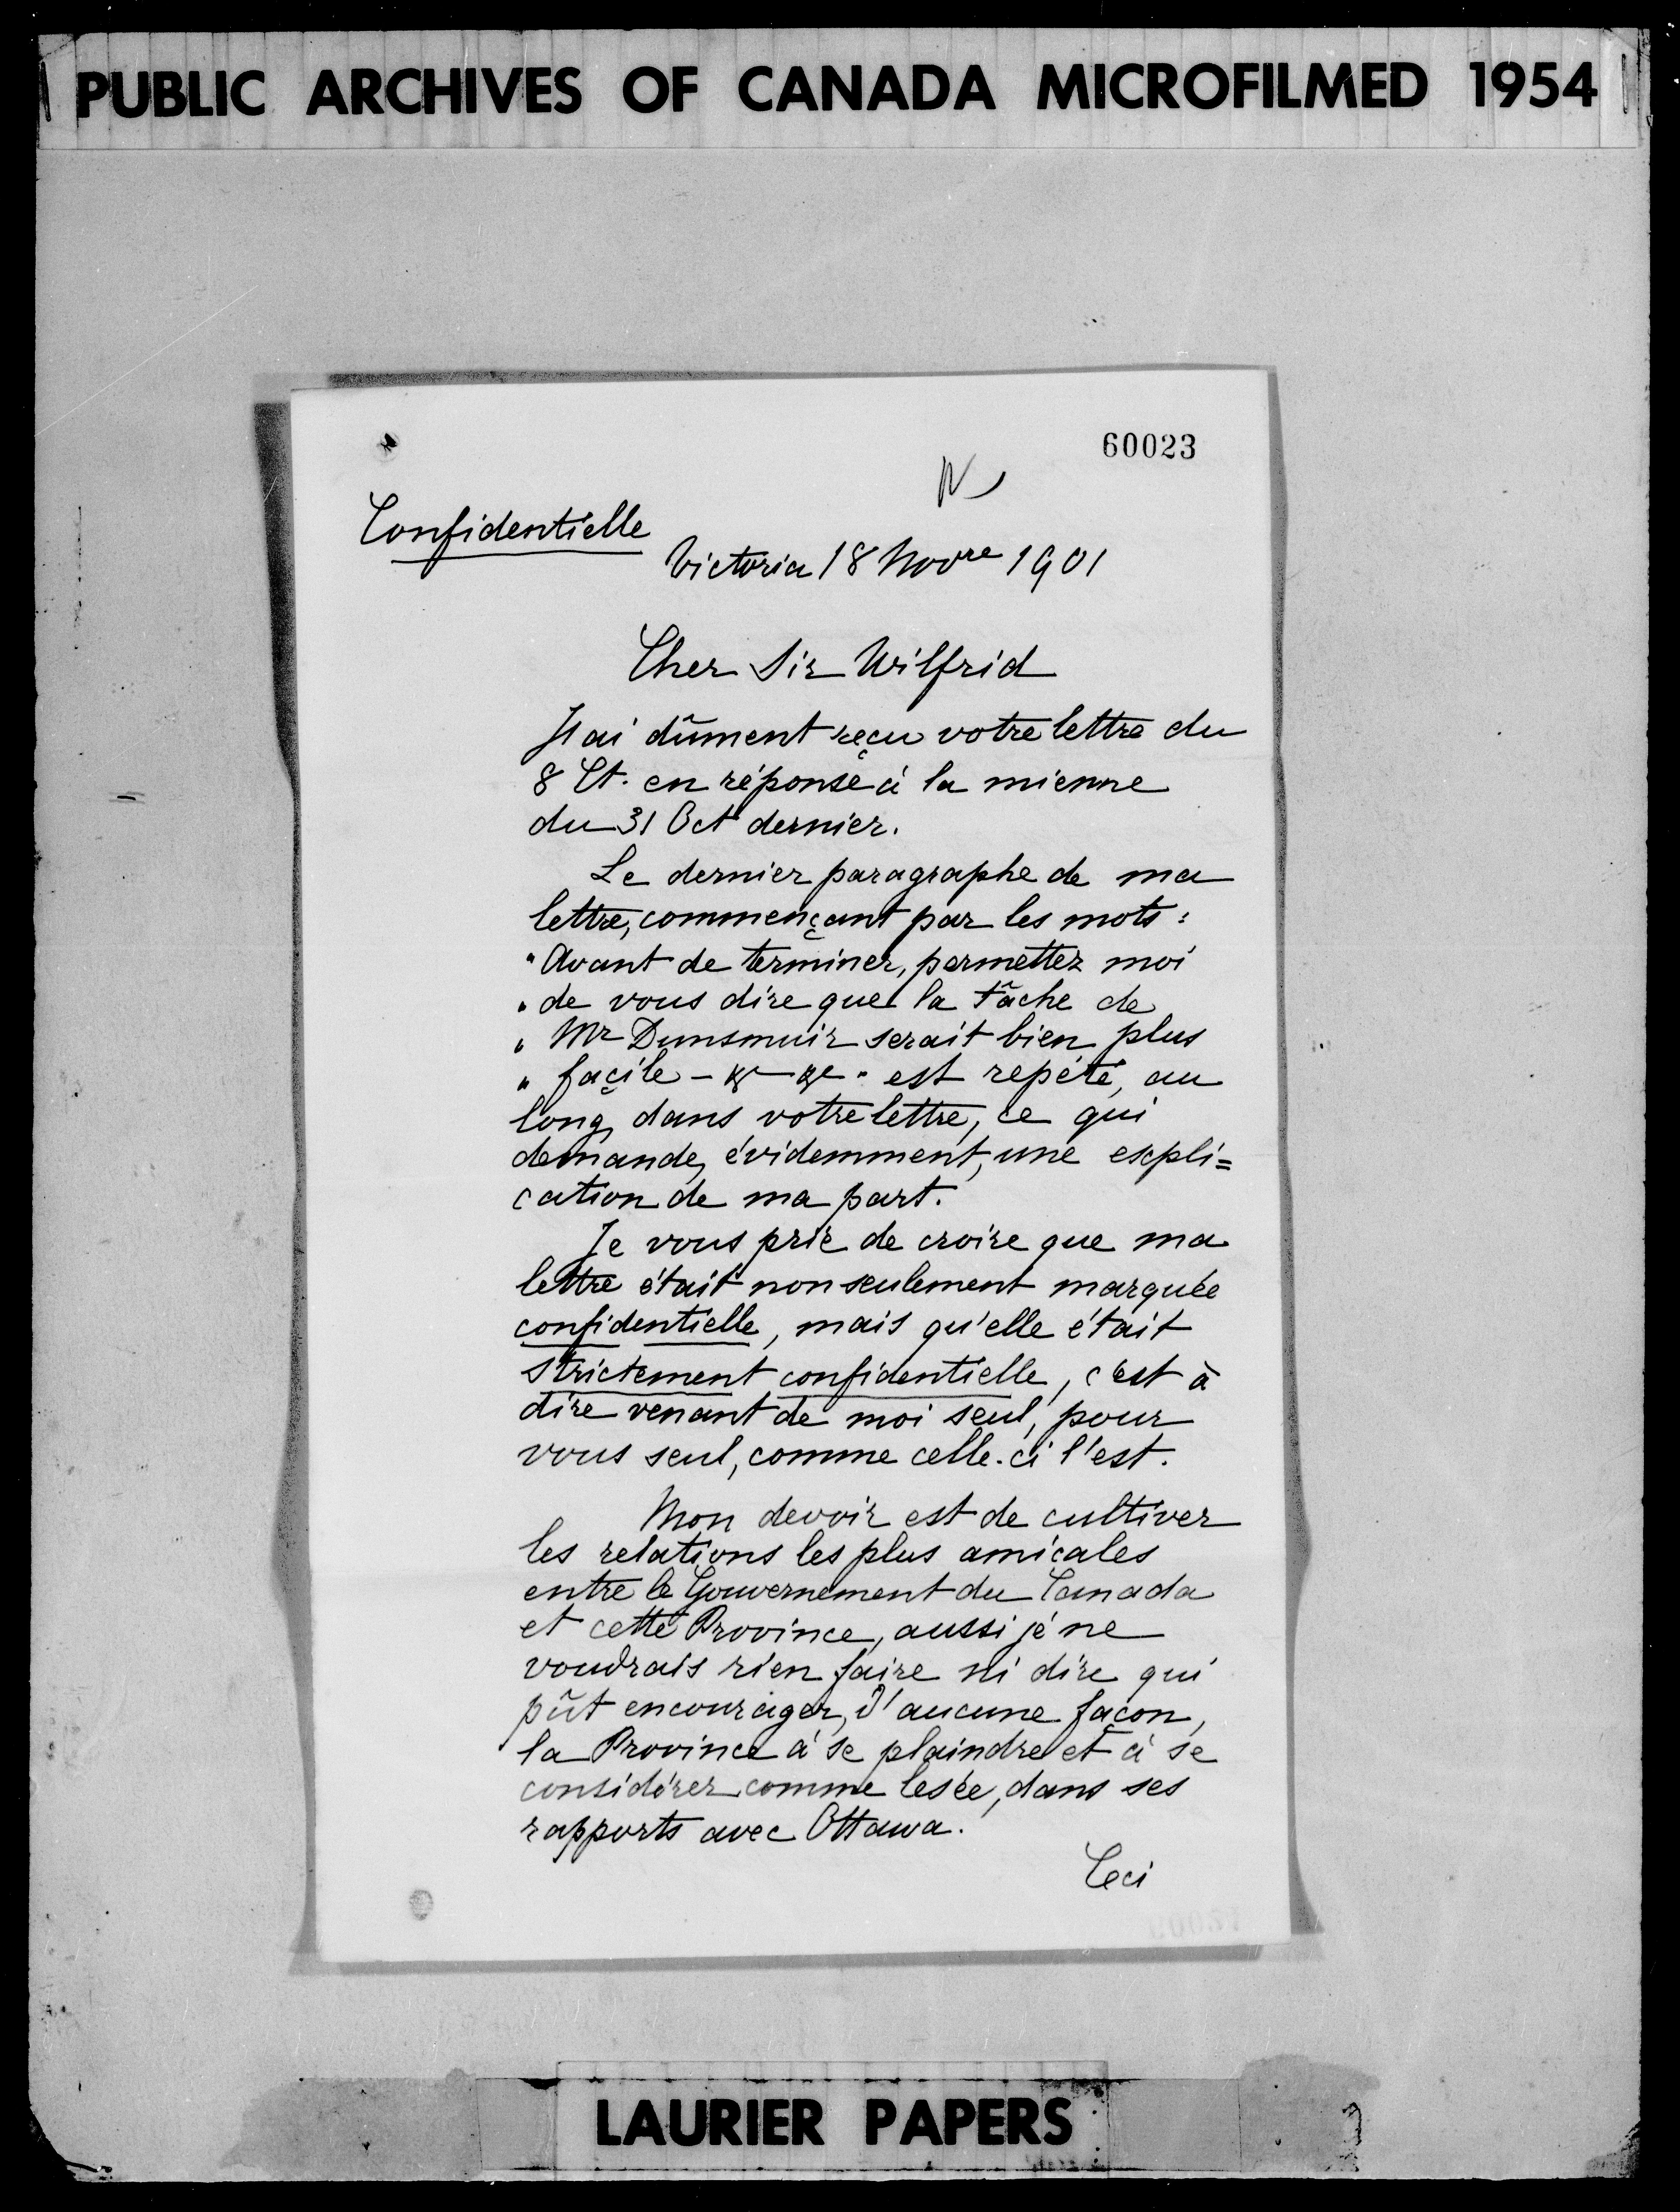 PUBLIC ARCHIVES OF CANADA MICROFILMED 1954
60023
Confidentielle
Victoria 18 Novre 1901
Cher Sir Wilfrid
J'ai dûment reçu votre lettre du
8 Ct. en réponse à la mienne
du 31 Oct dernier.
Le dernier paragraphe de ma
lettre, commençant par les mots :
"Avant de terminer, permettez moi
" de vous dire que la tâche de
" Mr Dunsmuir serait bien plus
" façile - &c - &c " est repété, au
long, dans votre lettre, ce qui
demande, évidemment, une expli=
cation de ma part.
Je vous prie de croire que ma
lettre était non seulement marquée
confidentielle, mais qu'elle était
strictement confidentielle, c'est à
dire venant de moi seul, pour
vous seul, comme celle-ci l'est.
Mon devoir est de cultiver
les relations les plus amicales
entre le Gouvernement du Canada
et cette Province, aussi je ne
voudrais rien faire ni dire qui
pût encourager, d'aucune façon,
la Province à se plaindre et à se
considérer comme lesée, dans ses
rapports avec Ottawa.
Ceci
LAURIER PAPERS